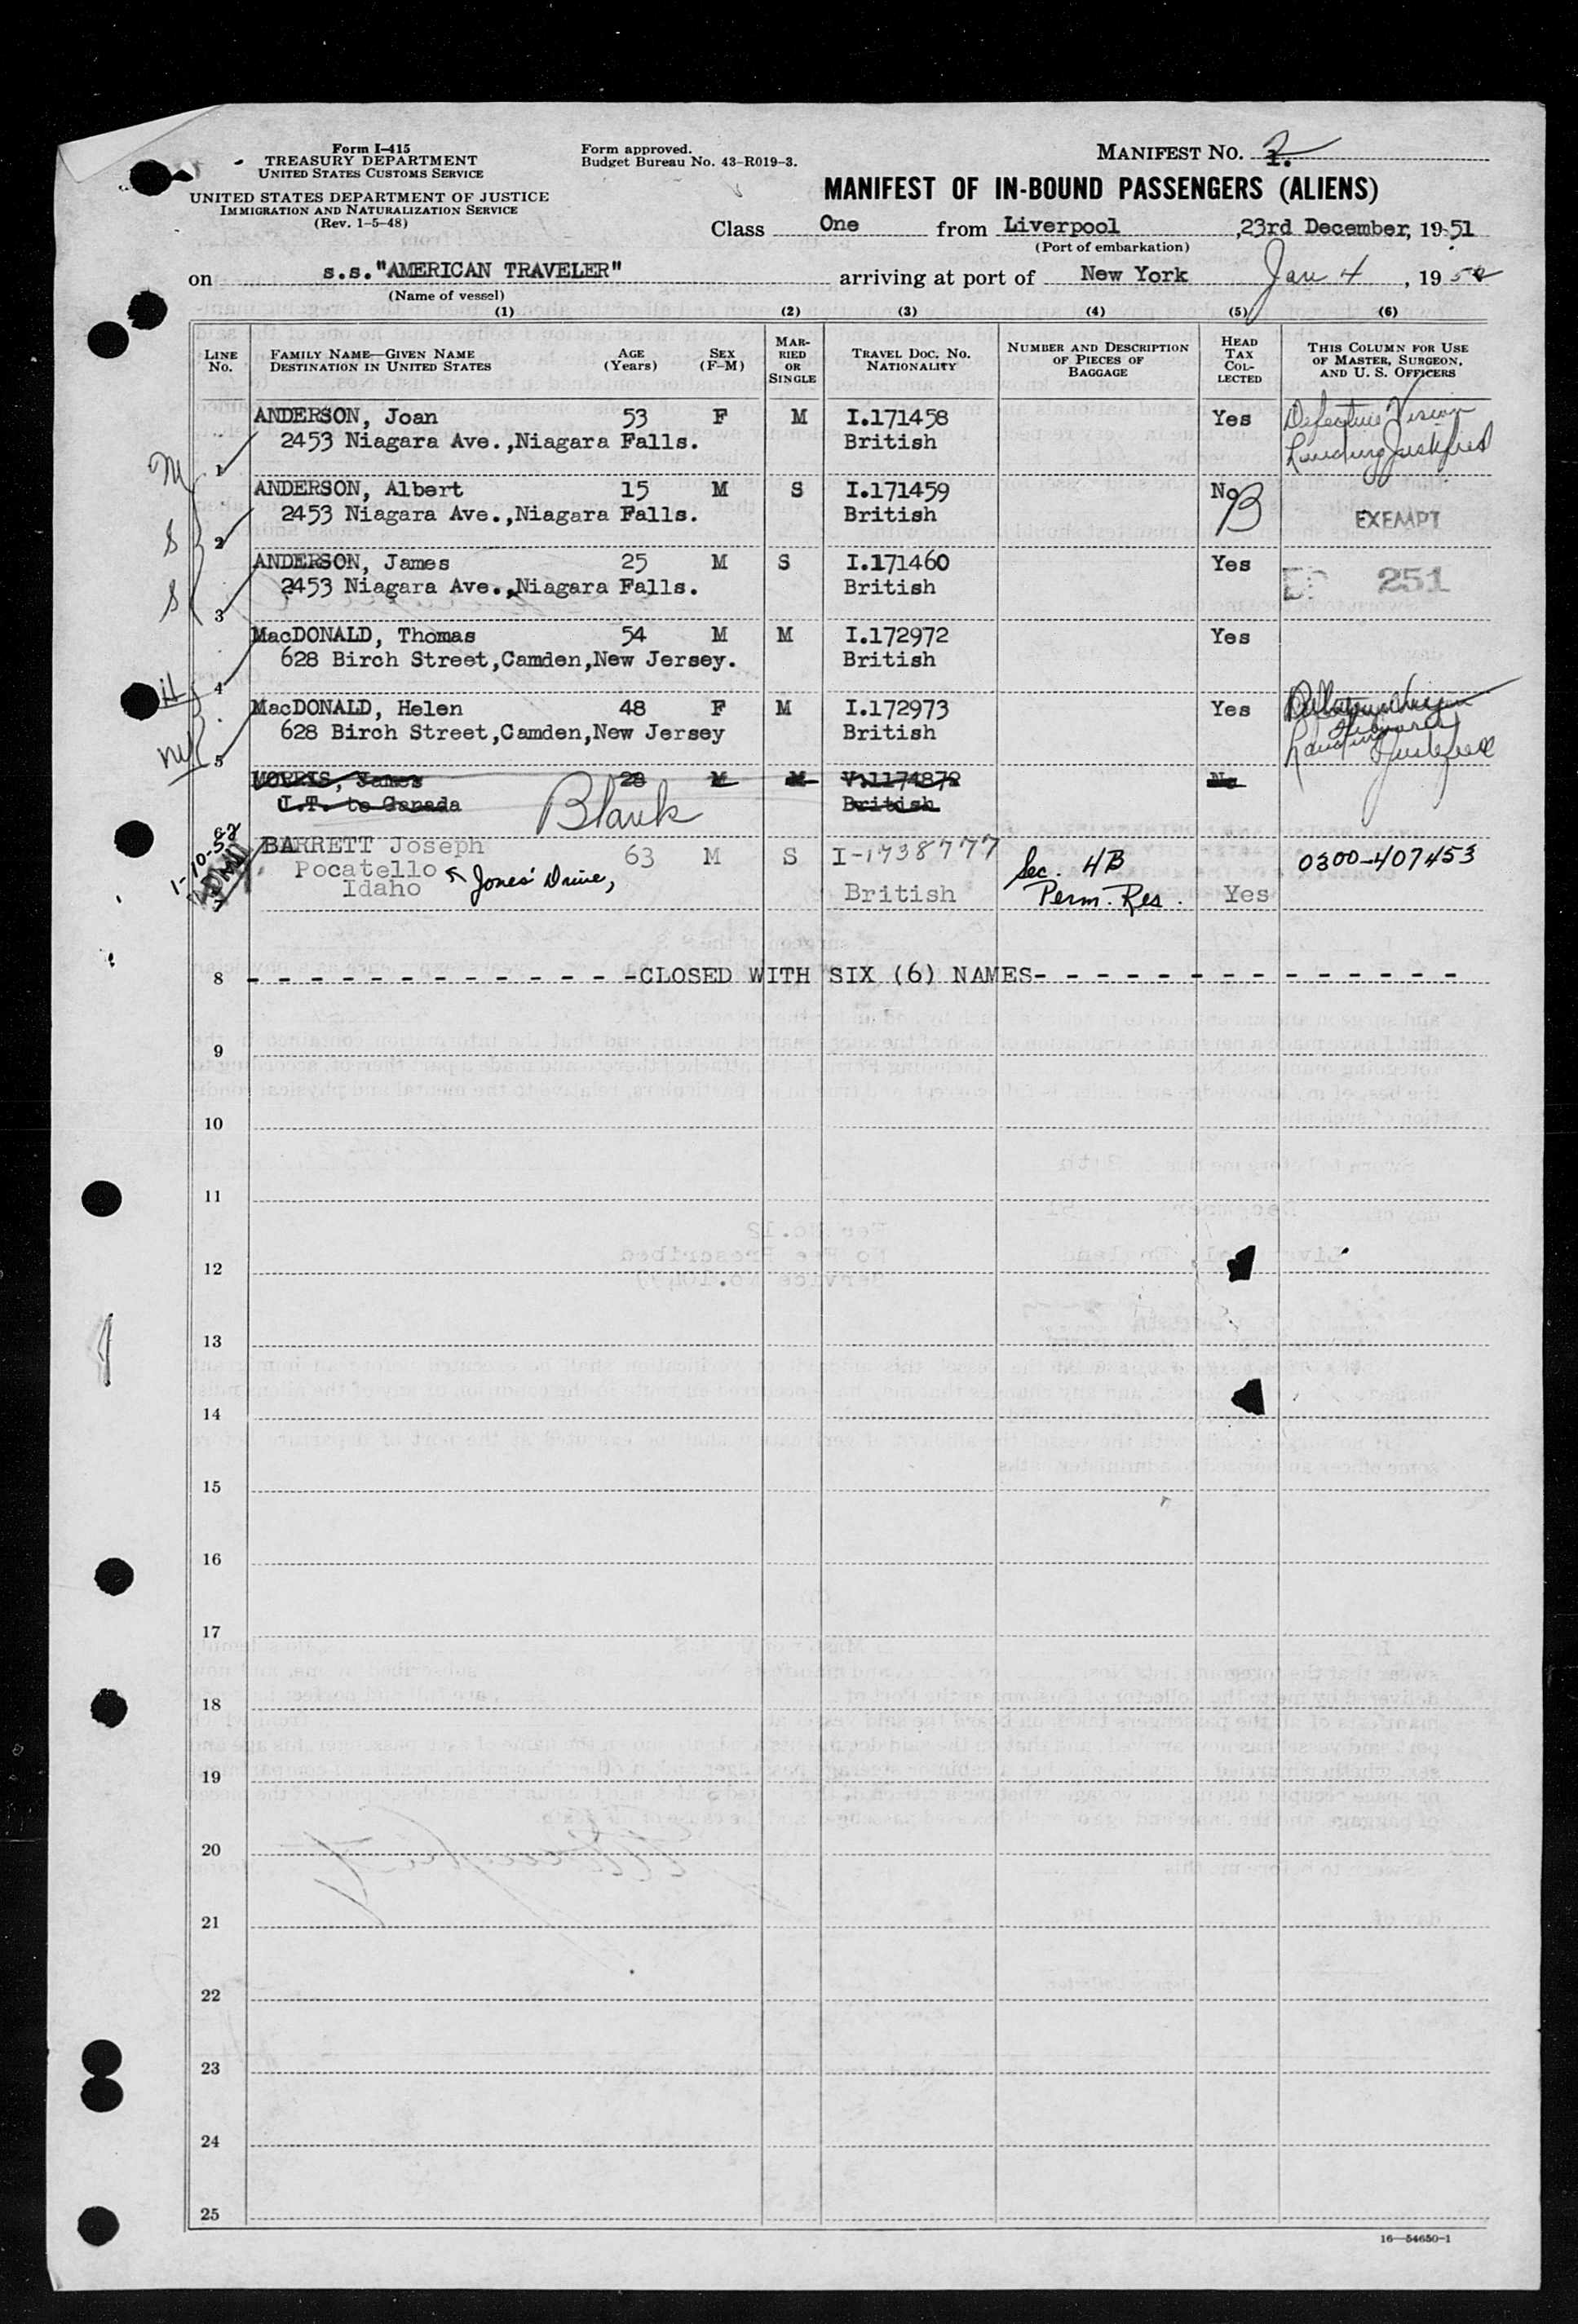 Form I-415
TREASURY DEPARTMENT
UNITED STATES CUSTOMS SERVICE
UNITED STATES DEPARTMENT OF JUSTICE
IMMIGRATION AND NATURALIZATION SERVICE
(Rev. 1-5-48)
Form approved.
Budget Bureau No. 43-R019-3.
MANIFEST NO. 2
MANIFEST OF IN-BOUND PASSENGERS (ALIENS)
Class One from Liverpool, 23rd December, 1951
(Port of embarkation)
on s.s."AMERICAN TRAVELER" arriving at port of New York Jan 4, 1952
(Name of vessel)
(1) (2) (3) (4) (5) (6)
LINE No. FAMILY NAME—GIVEN NAME DESTINATION IN UNITED STATES AGE (Years) SEX (F-M) MARRIED OR SINGLE TRAVEL DOC. NO. NATIONALITY NUMBER AND DESCRIPTION OF PIECES OF BAGGAGE HEAD TAX COLLECTED THIS COLUMN FOR USE OF MASTER, SURGEON, AND U. S. OFFICERS
ANDERSON, Joan 53 F M I.171458 Yes Defective Vision
1 2453 Niagara Ave.,Niagara Falls. British Landing Justified
ANDERSON, Albert 15 M S I.171459 No B
2 2453 Niagara Ave.,Niagara Falls. British EXEMPT
ANDERSON, James 25 M S I.171460 Yes
3 2453 Niagara Ave.,Niagara Falls. British 251
MacDONALD, Thomas 54 M M I.172972 Yes
4 628 Birch Street,Camden,New Jersey. British
MacDONALD, Helen 48 F M I.172973 Yes
5 628 Birch Street,Camden,New Jersey British Landing Justified
MORRIS, James 28 M M V.1174872 No
I.T. to Canada Blank British
1-10-52
BARRETT Joseph 63 M S I-1738777 Sec. 4B 0300-407453
Pocatello Jones' Drive,
7 Idaho British Perm. Res. Yes
8 CLOSED WITH SIX (6) NAMES
9
10
11
12
13
14
15
16
17
18
19
20
21
22
23
24
25
16—54650-1